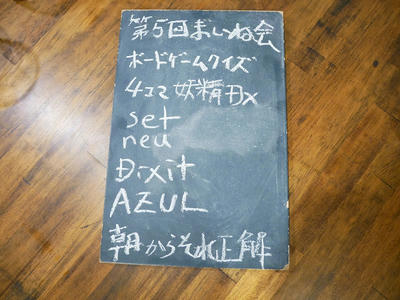 第5回ぎいね会
ボードゲームクイズ
4コマ妖精DX
set
neu
Dixit
AZUL
朝からそれ正解